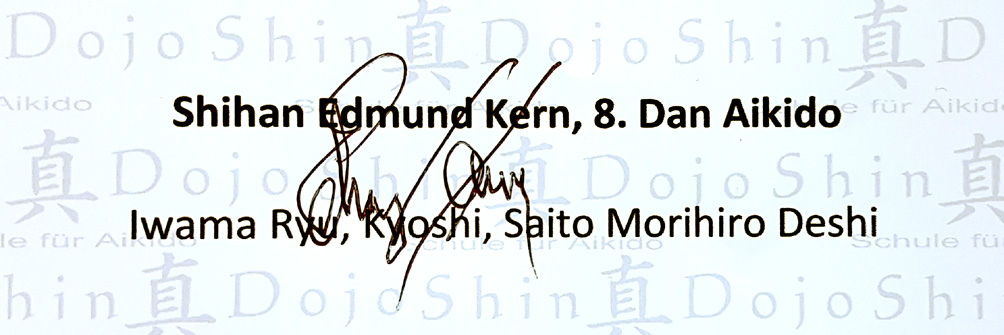 Dojo Shin 真 Dojo Shin 真 D
Aikido Schule für Aikido
Shihan Edmund Kern, 8. Dan Aikido
真 Dojo Shin 真 Dojo Shin 真
Iwama Ryu, Kyoshi, Saito Morihiro Deshi
le für Aikido Schule für Aikido Schule für
hin 真 Dojo Shin 真 Dojo Shi